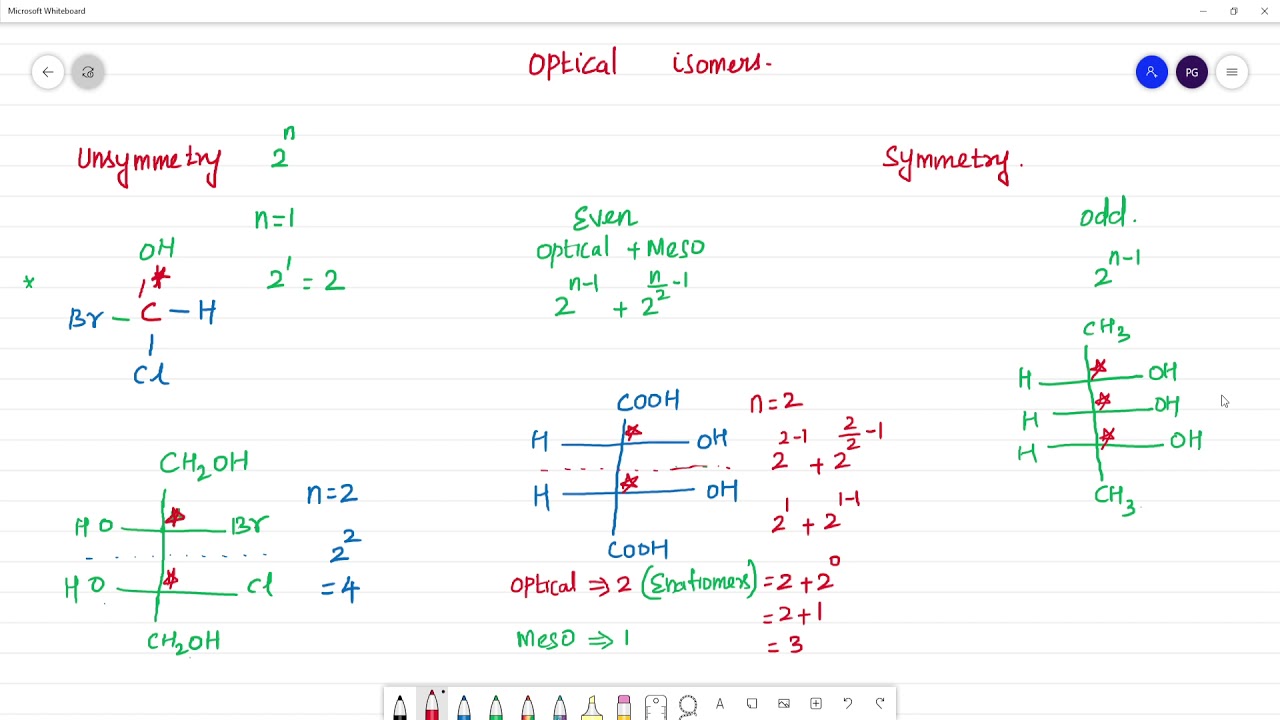 Microsoft Whiteboard
Optical isomers.
PG
Unsymmetry 2^n
n=1
OH
* 2^1 = 2
Br - C* - H
Cl
CH2OH
HO Br
HO Cl
CH2OH
n=2
2^2
= 4
Symmetry.
Even
Optical + Meso
2^n-1 + 2^n/2-1
COOH
H OH
H OH
COOH
n=2
2^2-1 + 2^2/2-1
2^1 + 2^1-1
Optical ⇒ 2 (Enatiomers) = 2 + 2^0
= 2+1
Meso ⇒ 1
= 3
odd.
2^n-1
CH3
H OH
H OH
H OH
CH3
A